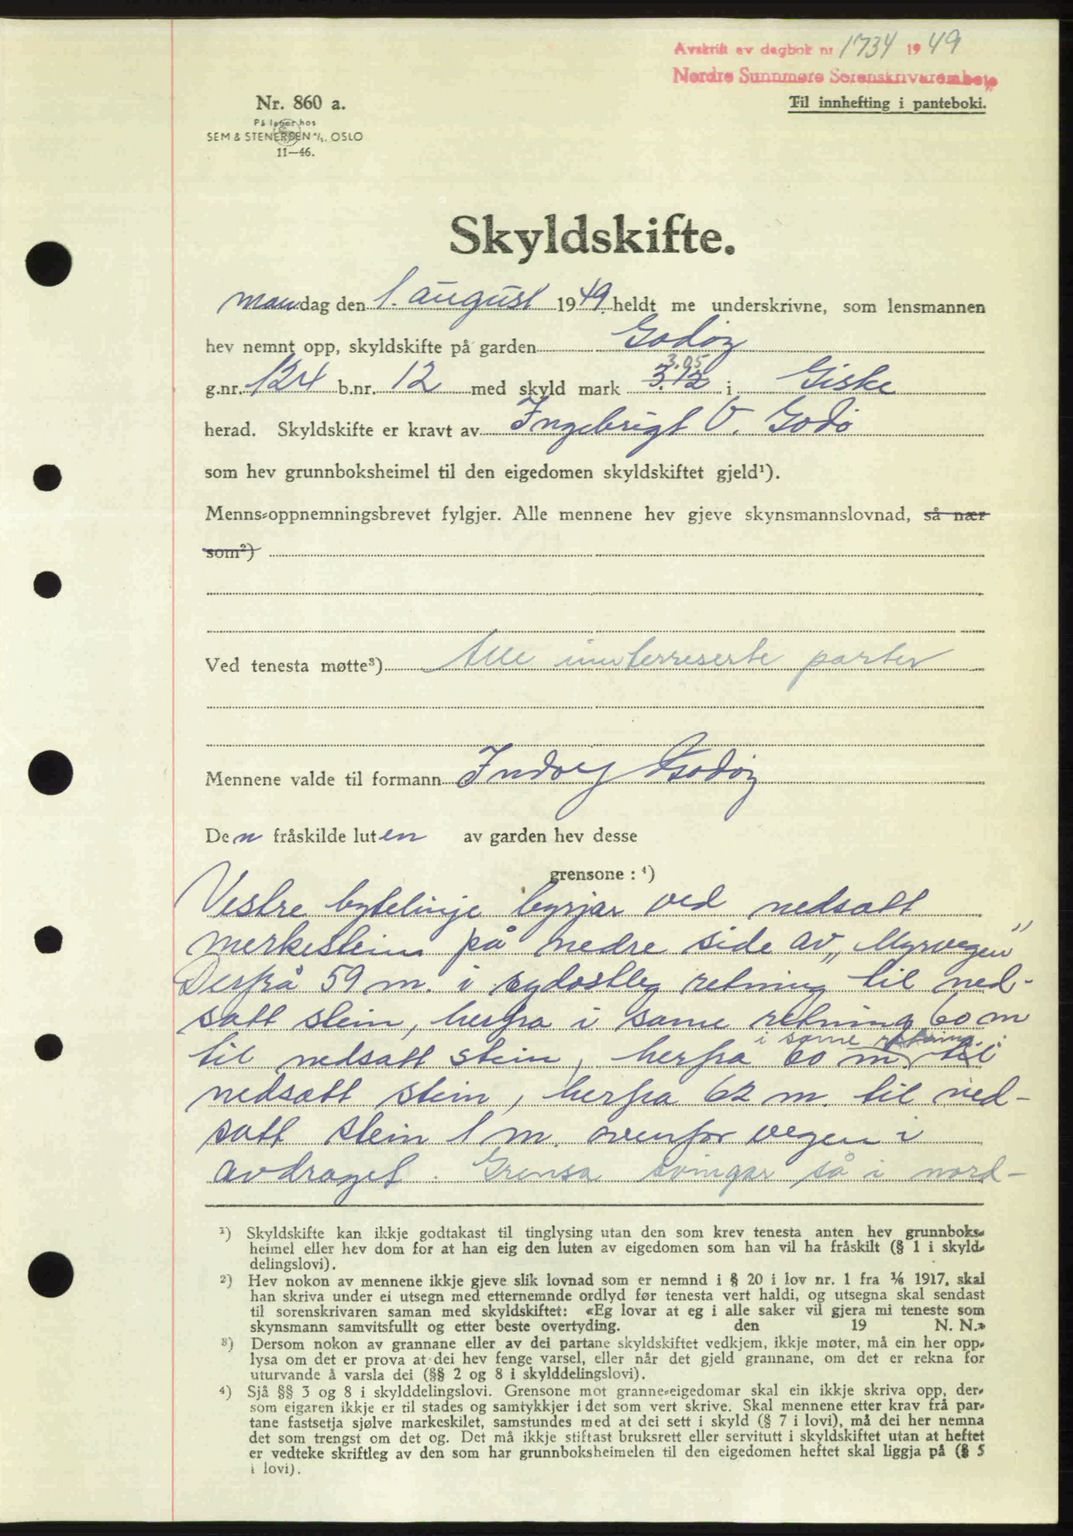 Avskrift av dagbok nr 1734 1949
Nordre Sunnmøre Sorenskrivarembete
Nr. 860 a.
Til innhefting i panteboki.
På lager hos
SEM & STENERSEN A/S, OSLO
11—46.
Skyldskifte.
mandag den 1. august 1949 heldt me underskrivne, som lensmannen
hev nemnt opp, skyldskifte på garden Godøy
3.05
g.nr. 124 b.nr. 12 med skyld mark 3.12 i Giske
herad. Skyldskifte er kravt av Ingebrigt V. Godø
som hev grunnboksheimel til den eigedomen skyldskiftet gjeld¹).
Menns-oppnemningsbrevet fylgjer. Alle mennene hev gjeve skynsmannslovnad, så nær
som²)
Ved tenesta møtte³) Alle innterreserte parter
Mennene valde til formann Indvey Godøy
Den fråskilde luten av garden hev desse
grensone : ⁴)
Vestre bytelinje byrjar ved nedsatt
merkestein på nedre side av „Myrvegen”
Derfrå 59 m. i sydøstleg retning til ned-
satt stein, herfra i same retning 60 m
i same retning
til nedsatt stein, herfra 60 m. til
nedsatt stein, herfra 62 m. til ned-
satt stein 1 m. ovenfor vegen i
avdraget. Grensa svingar så i nord-
¹) Skyldskifte kan ikkje godtakast til tinglysing utan den som krev tenesta anten hev grunnboks-
heimel eller hev dom for at han eig den luten av eigedomen som han vil ha fråskilt (§ 1 i skyld-
delingslovi).
²) Hev nokon av mennene ikkje gjeve slik lovnad som er nemnd i § 20 i lov nr. 1 fra 1/6 1917, skal
han skriva under ei utsegn med etternemnde ordlyd før tenesta vert haldi, og utsegna skal sendast
til sorenskrivaren saman med skyldskiftet: «Eg lovar at eg i alle saker vil gjera mi teneste som
skynsmann samvitsfullt og etter beste overtyding. den 19 N. N.»
³) Dersom nokon av grannane eller av dei partane skyldskiftet vedkjem, ikkje møter, må ein her opp-
lysa om det er prova at dei hev fenge varsel, eller når det gjeld grannane, om det er rekna for
uturvande å varsla dei (§§ 2 og 8 i skylddelingslovi).
⁴) Sjå §§ 3 og 8 i skylddelingslovi. Grensone mot granne-eigedomar skal ein ikkje skriva opp, der-
som eigaren ikkje er til stades og samtykkjer i det som vert skrive. Skal mennene etter krav frå par-
tane fastsetja sjølve markeskilet, samstundes med at dei sett i skyld (§ 7 i lovi), må dei her nemna
det som trengst om det og. Det må ikkje stiftast bruksrett eller servitutt i skyldskiftet utan at heftet
er vedteke skriftleg av den som har grunnboksheimelen til den eigedomen heftet skal liggja på (§ 5
i lovi).